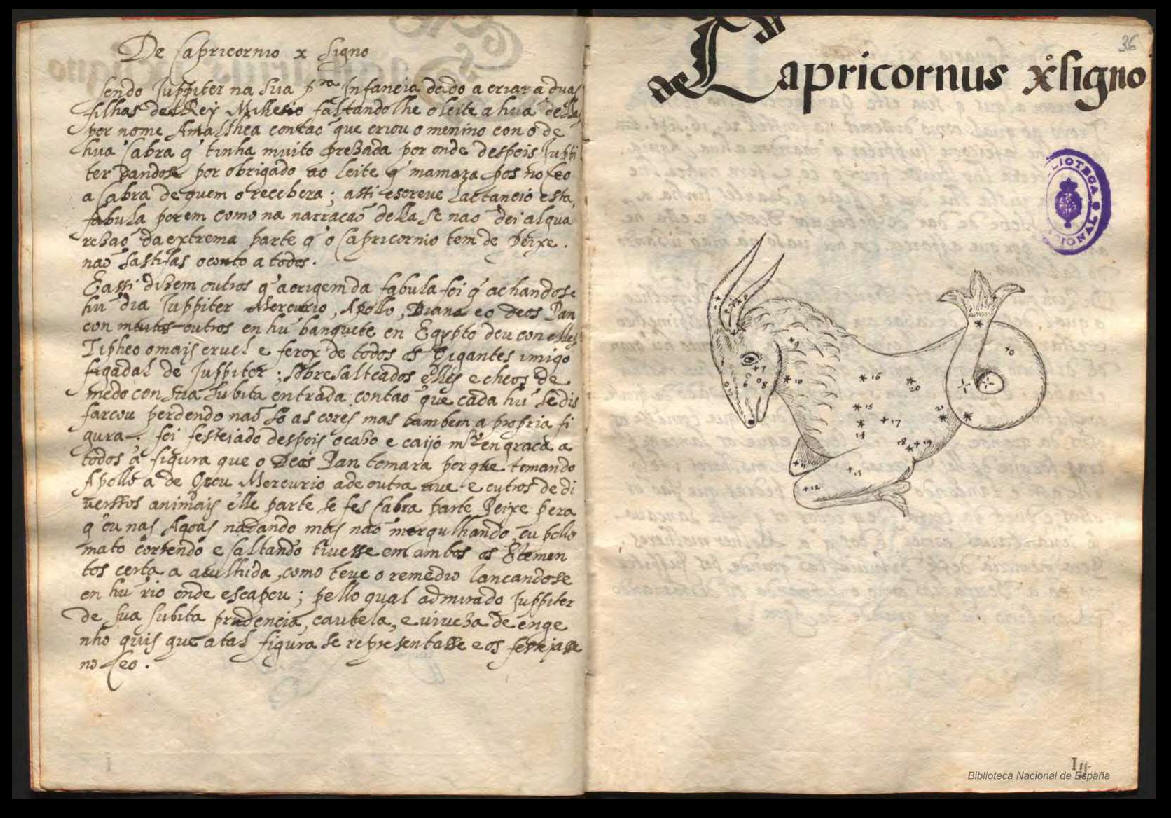 De Capricornio x signo
Sendo Juppiter na sua pra Infancia dado a criar a duas
filhas del Rey Milhesio faltandolhe o leite a hua dellas
por nome Amalthea contao que criou o menino con o de
hua Cabra q tinha muito prezada por onde despois Juppi
ter dandose por obrigado ao leite q mamara pos no ceo
a Cabra de quem o recebera; assi escreve Lactancio esta
fabula porem como na narracaõ della se naõ dei alqua
rezaõ da extrema parte q o Capricornio tem de Peixe.
naõ sastifas o conto a todos.
E assi dizem outros q a origem da fabula foi q achandose
hu dia Juppiter Mercurio, Apollo, Diana e o deos Pan
con muitos outros en hu banquete en Egypto deu con elles
Tipheo o mais cruel e feroz de todos os Gigantes imigo
figadal de Juppiter; sobresalteados elles e cheos de
medo con sua subita entrada contaõ que cada hu se dis
farcou perdendo naõ so as cores mas tambem a propria fi
gura. foi festeiado despois o cabo e caijo mto en graca a
todos a figura que o Deos Pan tomara porque tomando
Apollo a de Mercurio a de outra ave e outros de di
versos animais elle parte se fes Cabra parte Peixe pera
q ou nas Agoas nadando mas naõ merqulhando, ou pello
mato correndo e saltando tivesse em ambos os Elemen
tos certa a acolhida, como teve o remedio lancandose
en hu rio onde escapou; pello qual admirado Juppiter
de sua subita prudencia, cautela, e viveza de enge
nho quis que a tal figura se representasse e os festejasse
no Ceo.
36
De Capricornus x signo
BIBLIOTECA NACIONAL
Biblioteca Nacional de España